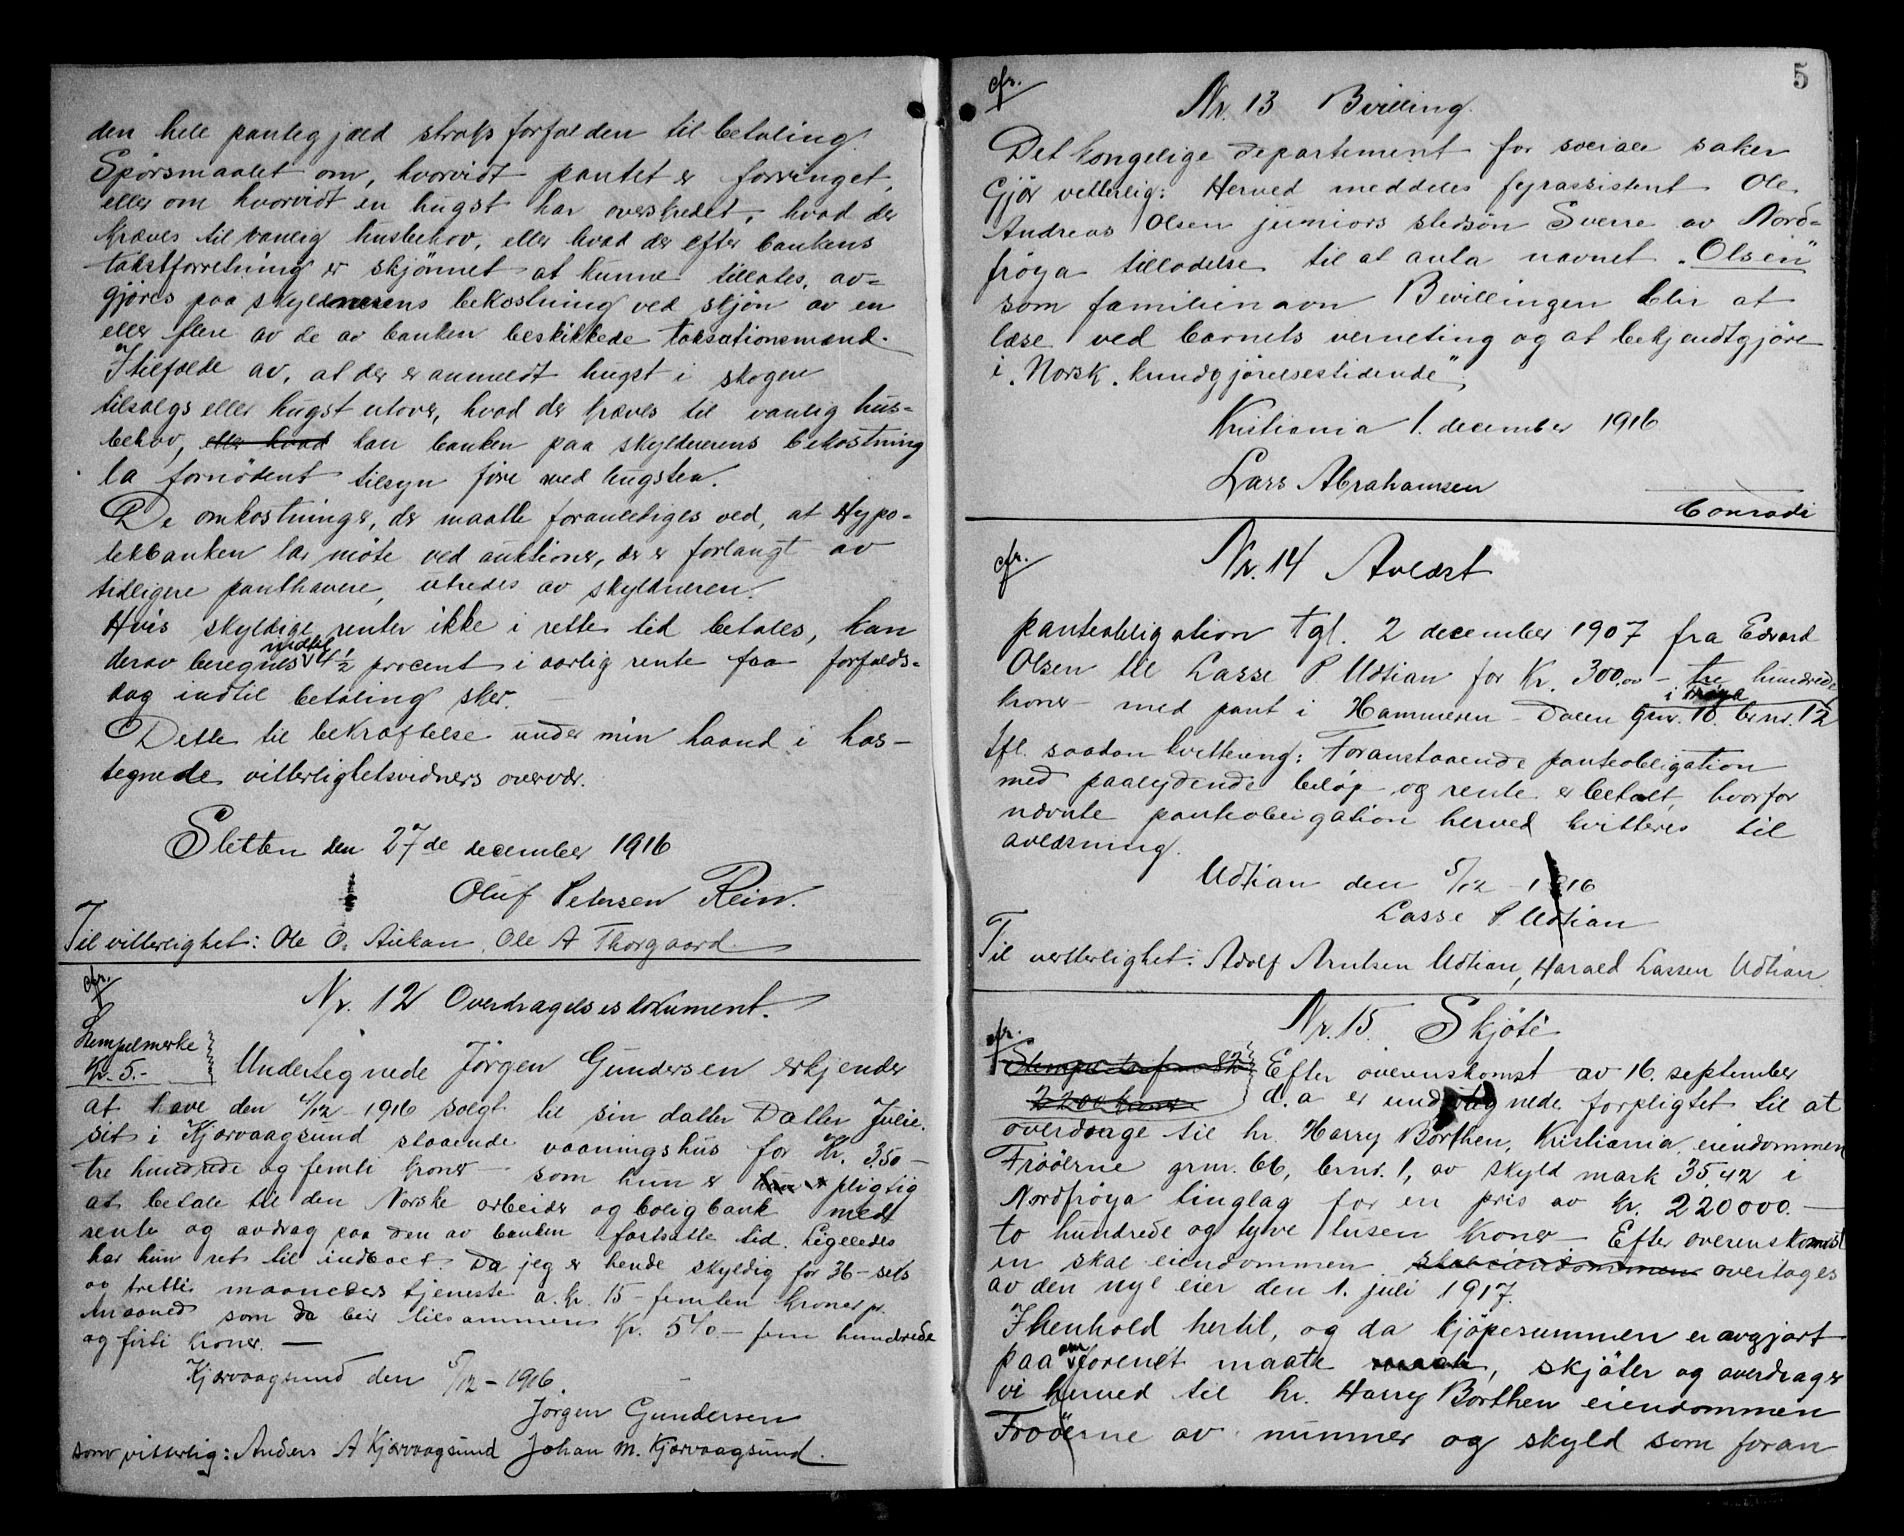 den hele pantegjæld straks forfalden til betaling.
Spørsmaalet om, hvorvidt pantet er forringet,
eller om hvorvidt en hugst har overskredet, hvad der
kræves til vanlig husbehov, eller hvad der efter bankens
takstforretning er skjönnet at kunne tillates, av-
gjöres paa skyldnerens bekostning ved skjön av en
eller flere av de av banken beskikkede taksationsmænd.
I tilfælde av, at der er anmeldt hugst i skogen
tilsalgs eller hugst utover, hvad der kræves til vanlig hus-
behov, eller hvad kan banken paa skyldnerens bekostning
la fornödent tilsyn före med hugsten.
De omkostninger, der maatte foranlediges ved, at Hypo-
tekbanken lar möte ved auktioner, der er forlangt av
tidligere panthavere, utredes av skyldneren.
Hvis skyldige renter ikke i rette tid betales, kan
derav beregnes indtil 4½ procent i aarlig rente fra forfalds-
dag indtil betaling sker.
Dette til bekræftelse under min haand i hos-
tegnede vitterlighetsvidners overvær.
Sletten den 27de december 1916
Oluf Petersen Rein.
Til vitterlighet: Ole O. Aukan, Ole A Thorgaard
cfr.
Nr. 12 Overdragelsesdokument.
Stempelmerke
Kr. 5.-
Undertegnede Jörgen Gundersen erkjender
at have den 4/12 1916 solgt til sin datter Datter Julie.
sit i Kjörvaagsund staaende vaaningshus for Kr. 350 —
tre hundrede og femti kroner — som hun er pligtig
at betale til den Norske arbeider og boligbank med
rente og avdrag paa den av banken fastsatte tid. Ligeledes
har hun ret til indboet. Da jeg er hende skyldig for 36 - seks
og tretti maaneders tjeneste a. kr. 15 - femten kroner pr.
maaned som da blir tilsammen Kr. 540.- fem hundrede
og firti kroner. —
Kjörvaagsund den 5/12 - 1916.
Jörgen Gundersen
som vitterlig: Anders A Kjörvaagsund Johan M. Kjörvaagsund.
5
cfr.
Nr. 13 Bvilling.
Det kongelige departement for sociale saker
Gjör vetterlig: Herved meddeles fyrassistent Ole
Andreas Olsen juniors stedsön Sverre av Nord-
fröya tilladelse til at anta navnet "Olsen"
som familienavn Bevillingen blir at
læse ved barnets verneting og at bekjendtgjöre
i "Norsk kundgjörelsestidende"
Kristiania 1. december 1916
Lars Abrahamsen
Conradi
cfr.
Nr. 14 Avlæst
panteobligation tgl. 2 december 1907 fra Edvard
Olsen til Lasse P Udtian for Kr. 300,00 - tre hundrede
kroner - med pant i Hammeren - Dalen i Fröya gnr. 10. brnr. 12
tfl. saadan kvittering: Foranstaaende panteobligation
med paalydende belöp og rente er betalt, hvorfor
nævnte panteobligation herved kvitteres til
avlæsning.
Udtian den 5/12 - 1916
Lasse P Udtian
Til vetterlighet: Adolf Arntsen Udtian, Harald Lassen Udtian.
Nr. 15. Skjöte
cfr.
2200 kroner
Efter overenskomst av 16. september
d. a er undertegnede forpligtet til at
overdrage til hr. Harry Borthen, Kristiania, eiendommen
Fröòerne grnr. 66, brnr. 1, av skyld mark 35,42 i
Nordfröya tinglag for en pris av kr. 220000. —
to hundrede og tyve tusen kroner — Efter overenskomst
en skal eiendommen skal eiendommen overtages
av den nye eier den 1. juli 1917.
I henhold hertil, og da kjöpesummen er avgjort
paa omforenet maate maate, skjöter og overdrager
vi herved til hr. Harry Borthen eiendommen
Froöerne av nummer og skyld som foran